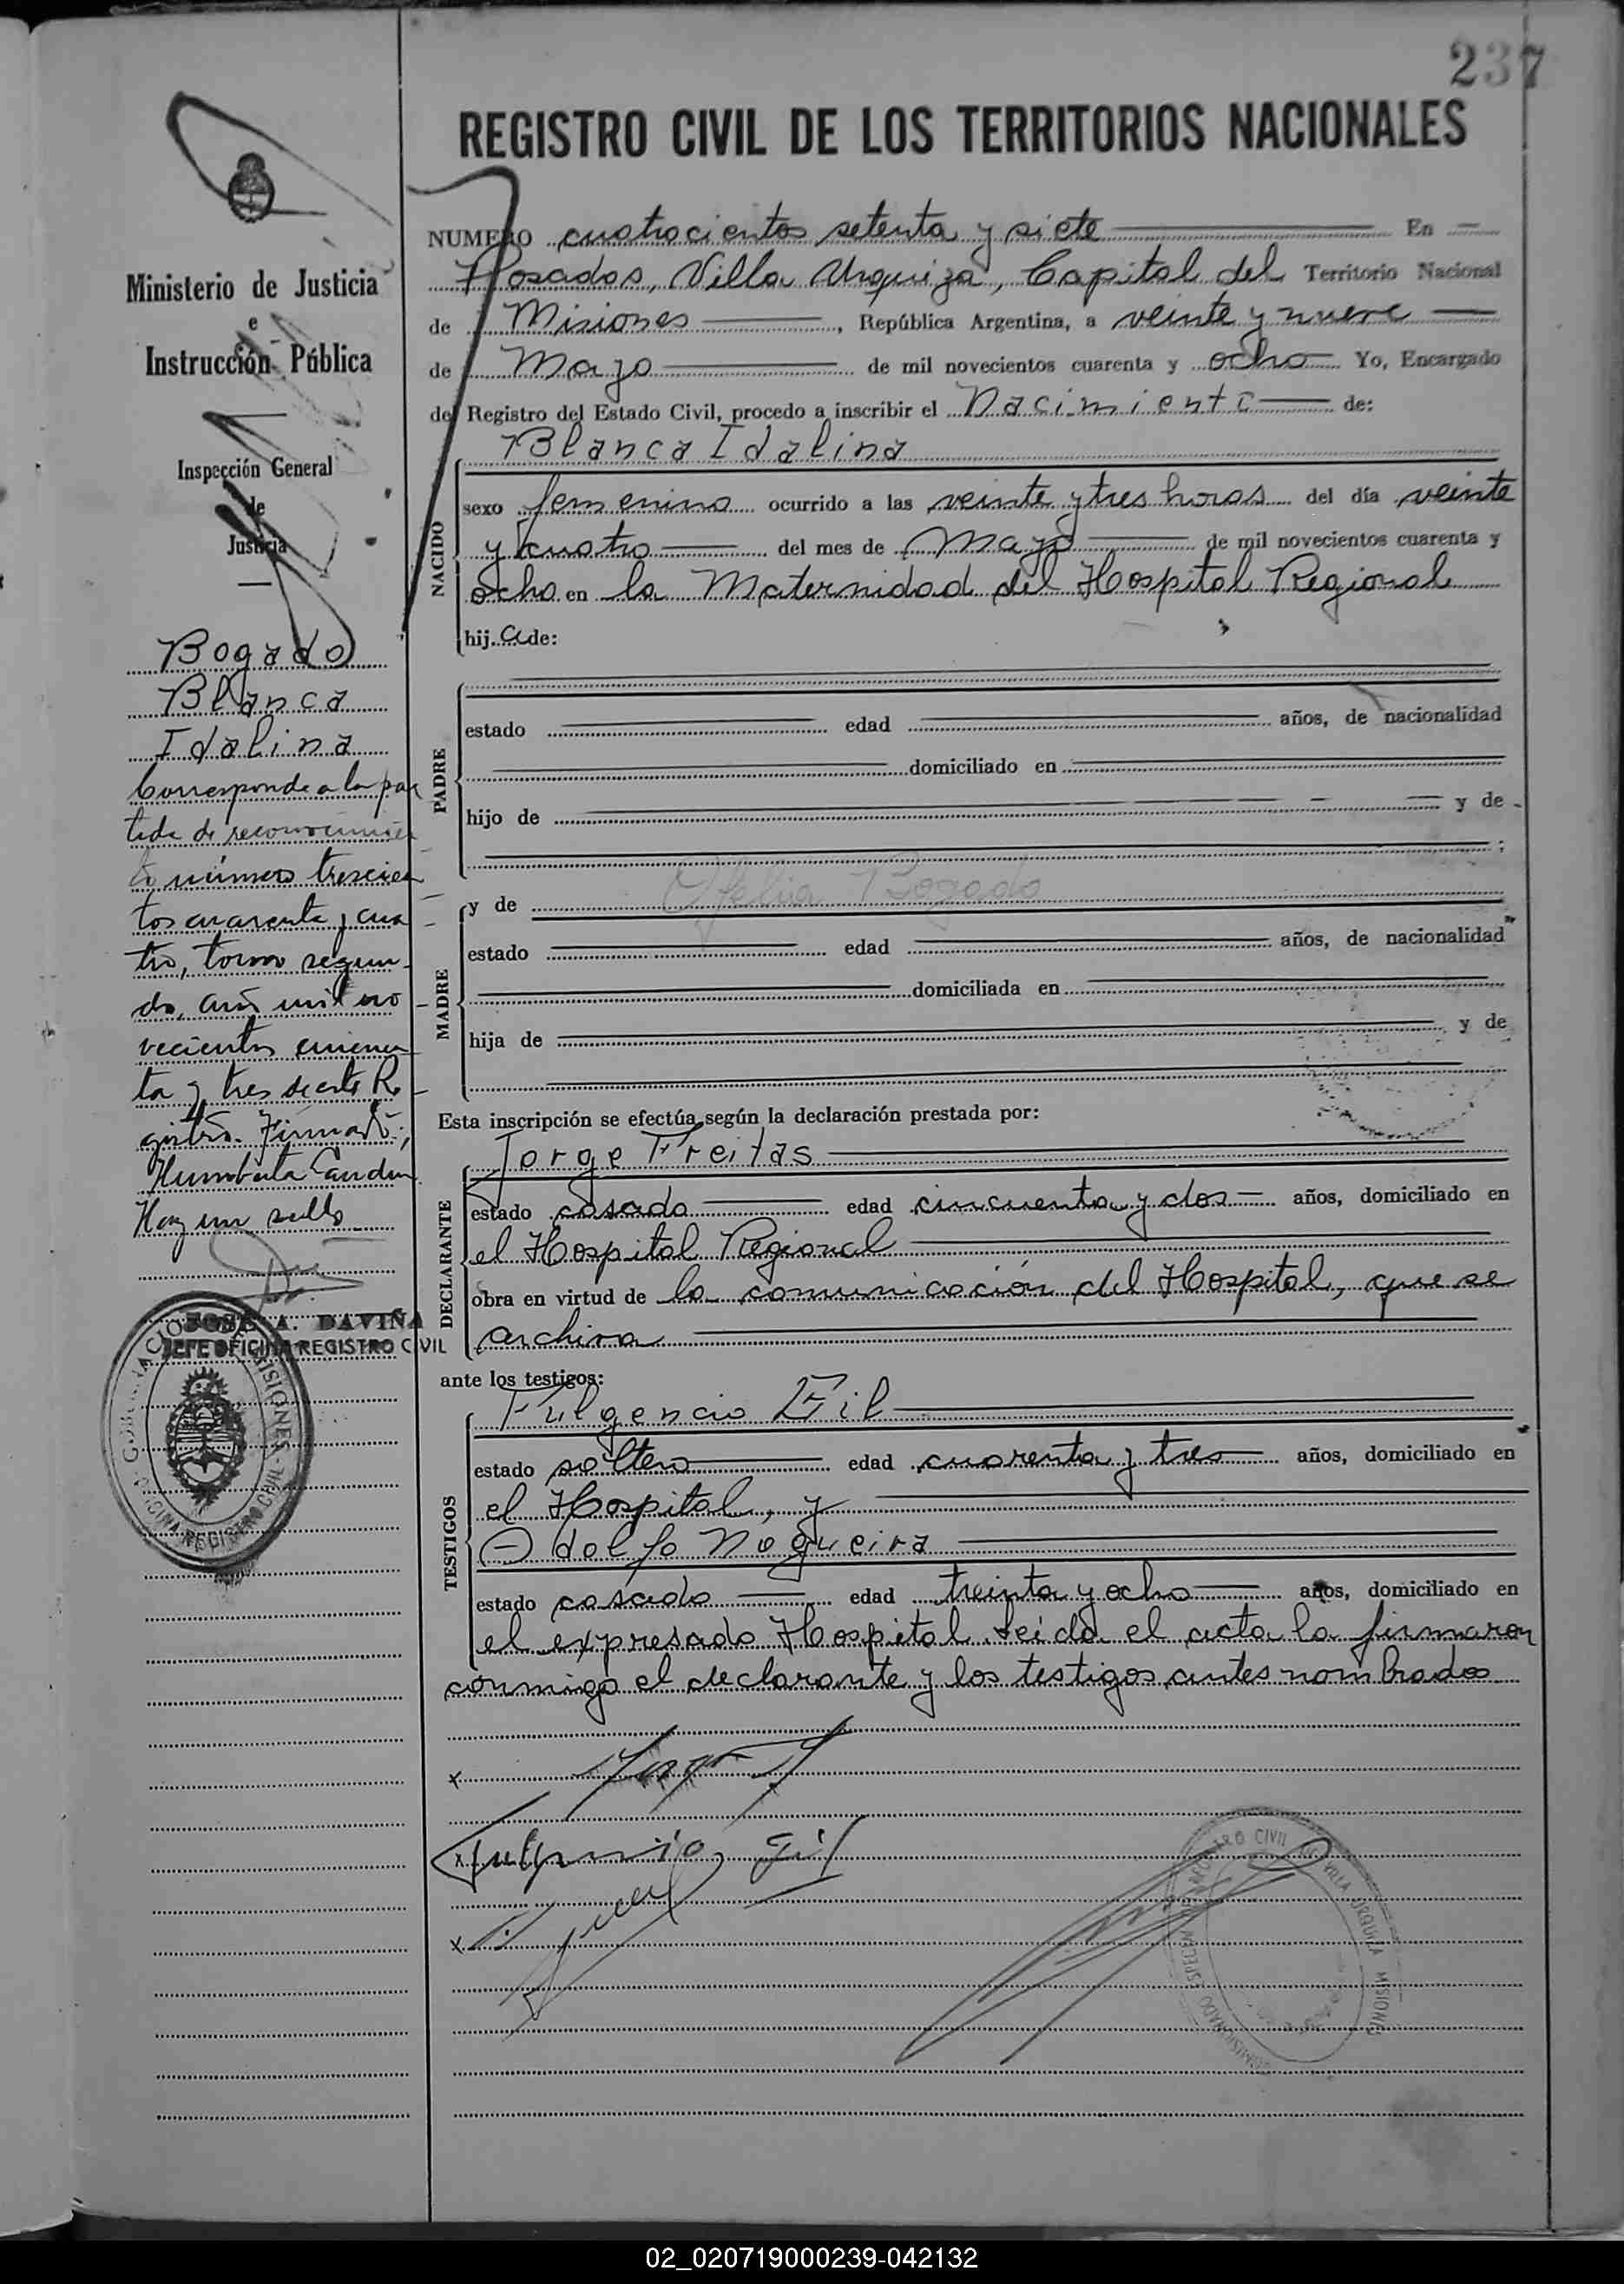 237
REGISTRO CIVIL DE LOS TERRITORIOS NACIONALES
Ministerio de Justicia
e
Instrucción Pública
Inspección General
de
Justicia
Bogado
Blanca
Idalina
Corresponde a la par
tida de reconocimien
to número trescien
tos cuarenta y cua
tro, tomo segun-
do, año mil no
vecientos cincuen
ta y tres de este Re
gistro. Firmado:
Humberto
Hay un sello
JOSE A. DAVIÑA
JEFE OFICINA REGISTRO CIVIL
GOBERNACION DE MISIONES - OFICINA REGISTRO CIVIL
NUMERO cuatrocientos setenta y siete En
Posadas, Villa Urquiza, Capital del Territorio Nacional
de Misiones, República Argentina, a veinte y nueve
de Mayo de mil novecientos cuarenta y ocho Yo, Encargado
del Registro del Estado Civil, procedo a inscribir el Nacimiento de:
NACIDO
Blanca Idalina
sexo femenino ocurrido a las veinte y tres horas del día veinte
y cuatro del mes de Mayo de mil novecientos cuarenta y
ocho en la Maternidad del Hospital Regional
hij a de:
PADRE
estado edad años, de nacionalidad
domiciliado en
hijo de y de
;
MADRE
y de Ofelia Bogado
estado edad años, de nacionalidad
domiciliada en
hija de y de
Esta inscripción se efectúa según la declaración prestada por:
DECLARANTE
Jorge Freitas
estado casado edad cincuenta y dos años, domiciliado en
el Hospital Regional
obra en virtud de la comunicación del Hospital, que se
archiva
ante los testigos:
TESTIGOS
Fulgencio Gil
estado soltero edad cuarenta y tres años, domiciliado en
el Hospital, y
Adolfo Nogueira
estado casado edad treinta y ocho años, domiciliado en
el expresado Hospital. Leída el acta la firmaron
conmigo el declarante y los testigos antes nombrados
x
x Fulgencio Gil
x
REGISTRO CIVIL DE VILLA URQUIZA MISIONES
02_020719000239-042132